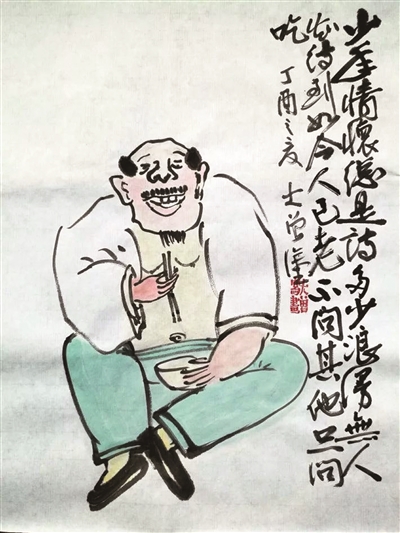 少年情怀总是诗多少浪漫無人
知待到如今人已老不问其他只问
吃 丁酉之夏 士曾画